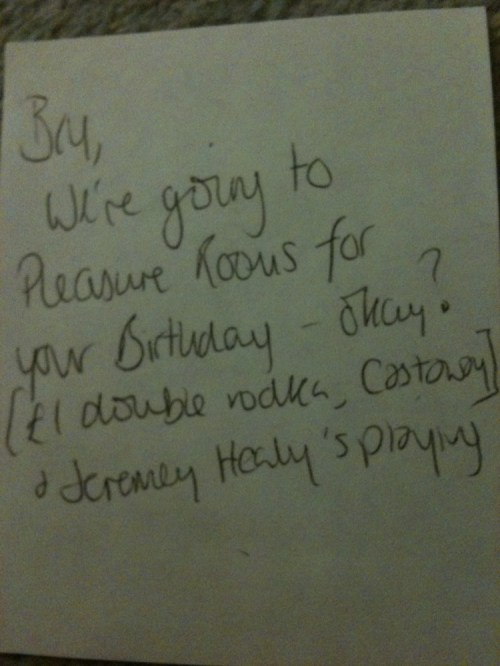 Bry,
We're going to
Pleasure Rooms for
your Birthday - okay?
[£1 double vodka, Castaway]
& Jeremey Healy's playing